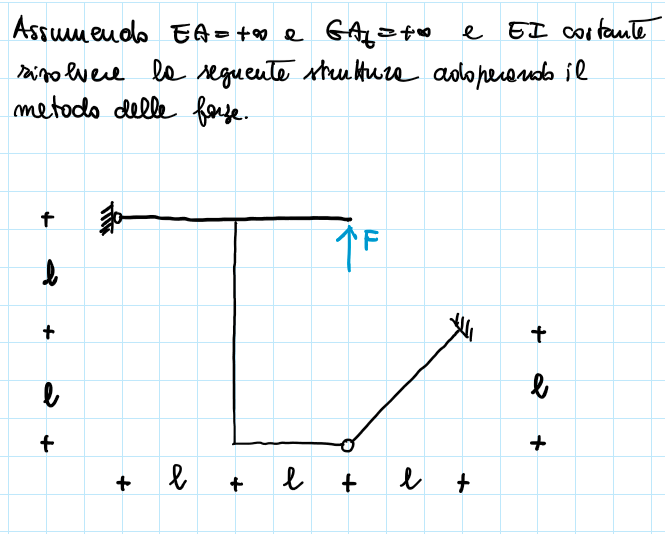 Assumendo EA=+∞ e GAt=+∞ e EI costante
risolvere la seguente struttura adoperando il
metodo delle forze.
+
F
l
+
+
l
l
+
+
+ l + l + l +